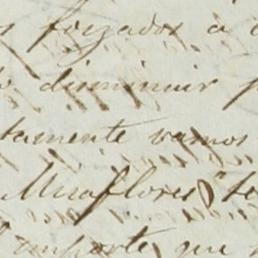 forzados á
disminuir
tamente vamos
Miraflores
importe que